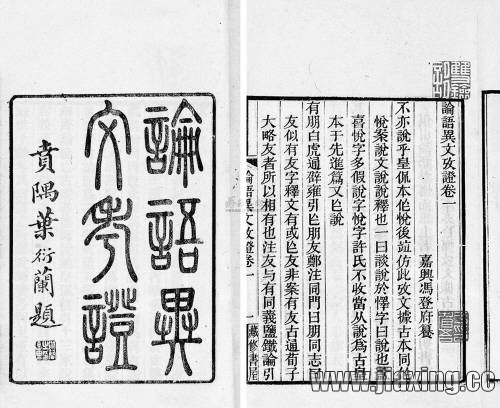 論語異文攷證卷一
嘉興馮登府纂
不亦說乎皇侃本作悅後竝仿此攷文據古本同作
悅案說文說說釋也一曰談說於懌字曰說也
喜悅字多假說字悅字許氏不收當从說爲古自
本于先進篇又作說
有朋白虎通辟雍引作朋友鄭注同門曰朋同志同
友似有友字釋文有或作友非案有友古通荀子
大略友者所以相有也注友與有同義鹽鐵論引
論語異文攷證卷一
一
藏修書屋
論語異
文考證
賁隅葉衍蘭題
www.jiaxing.cc